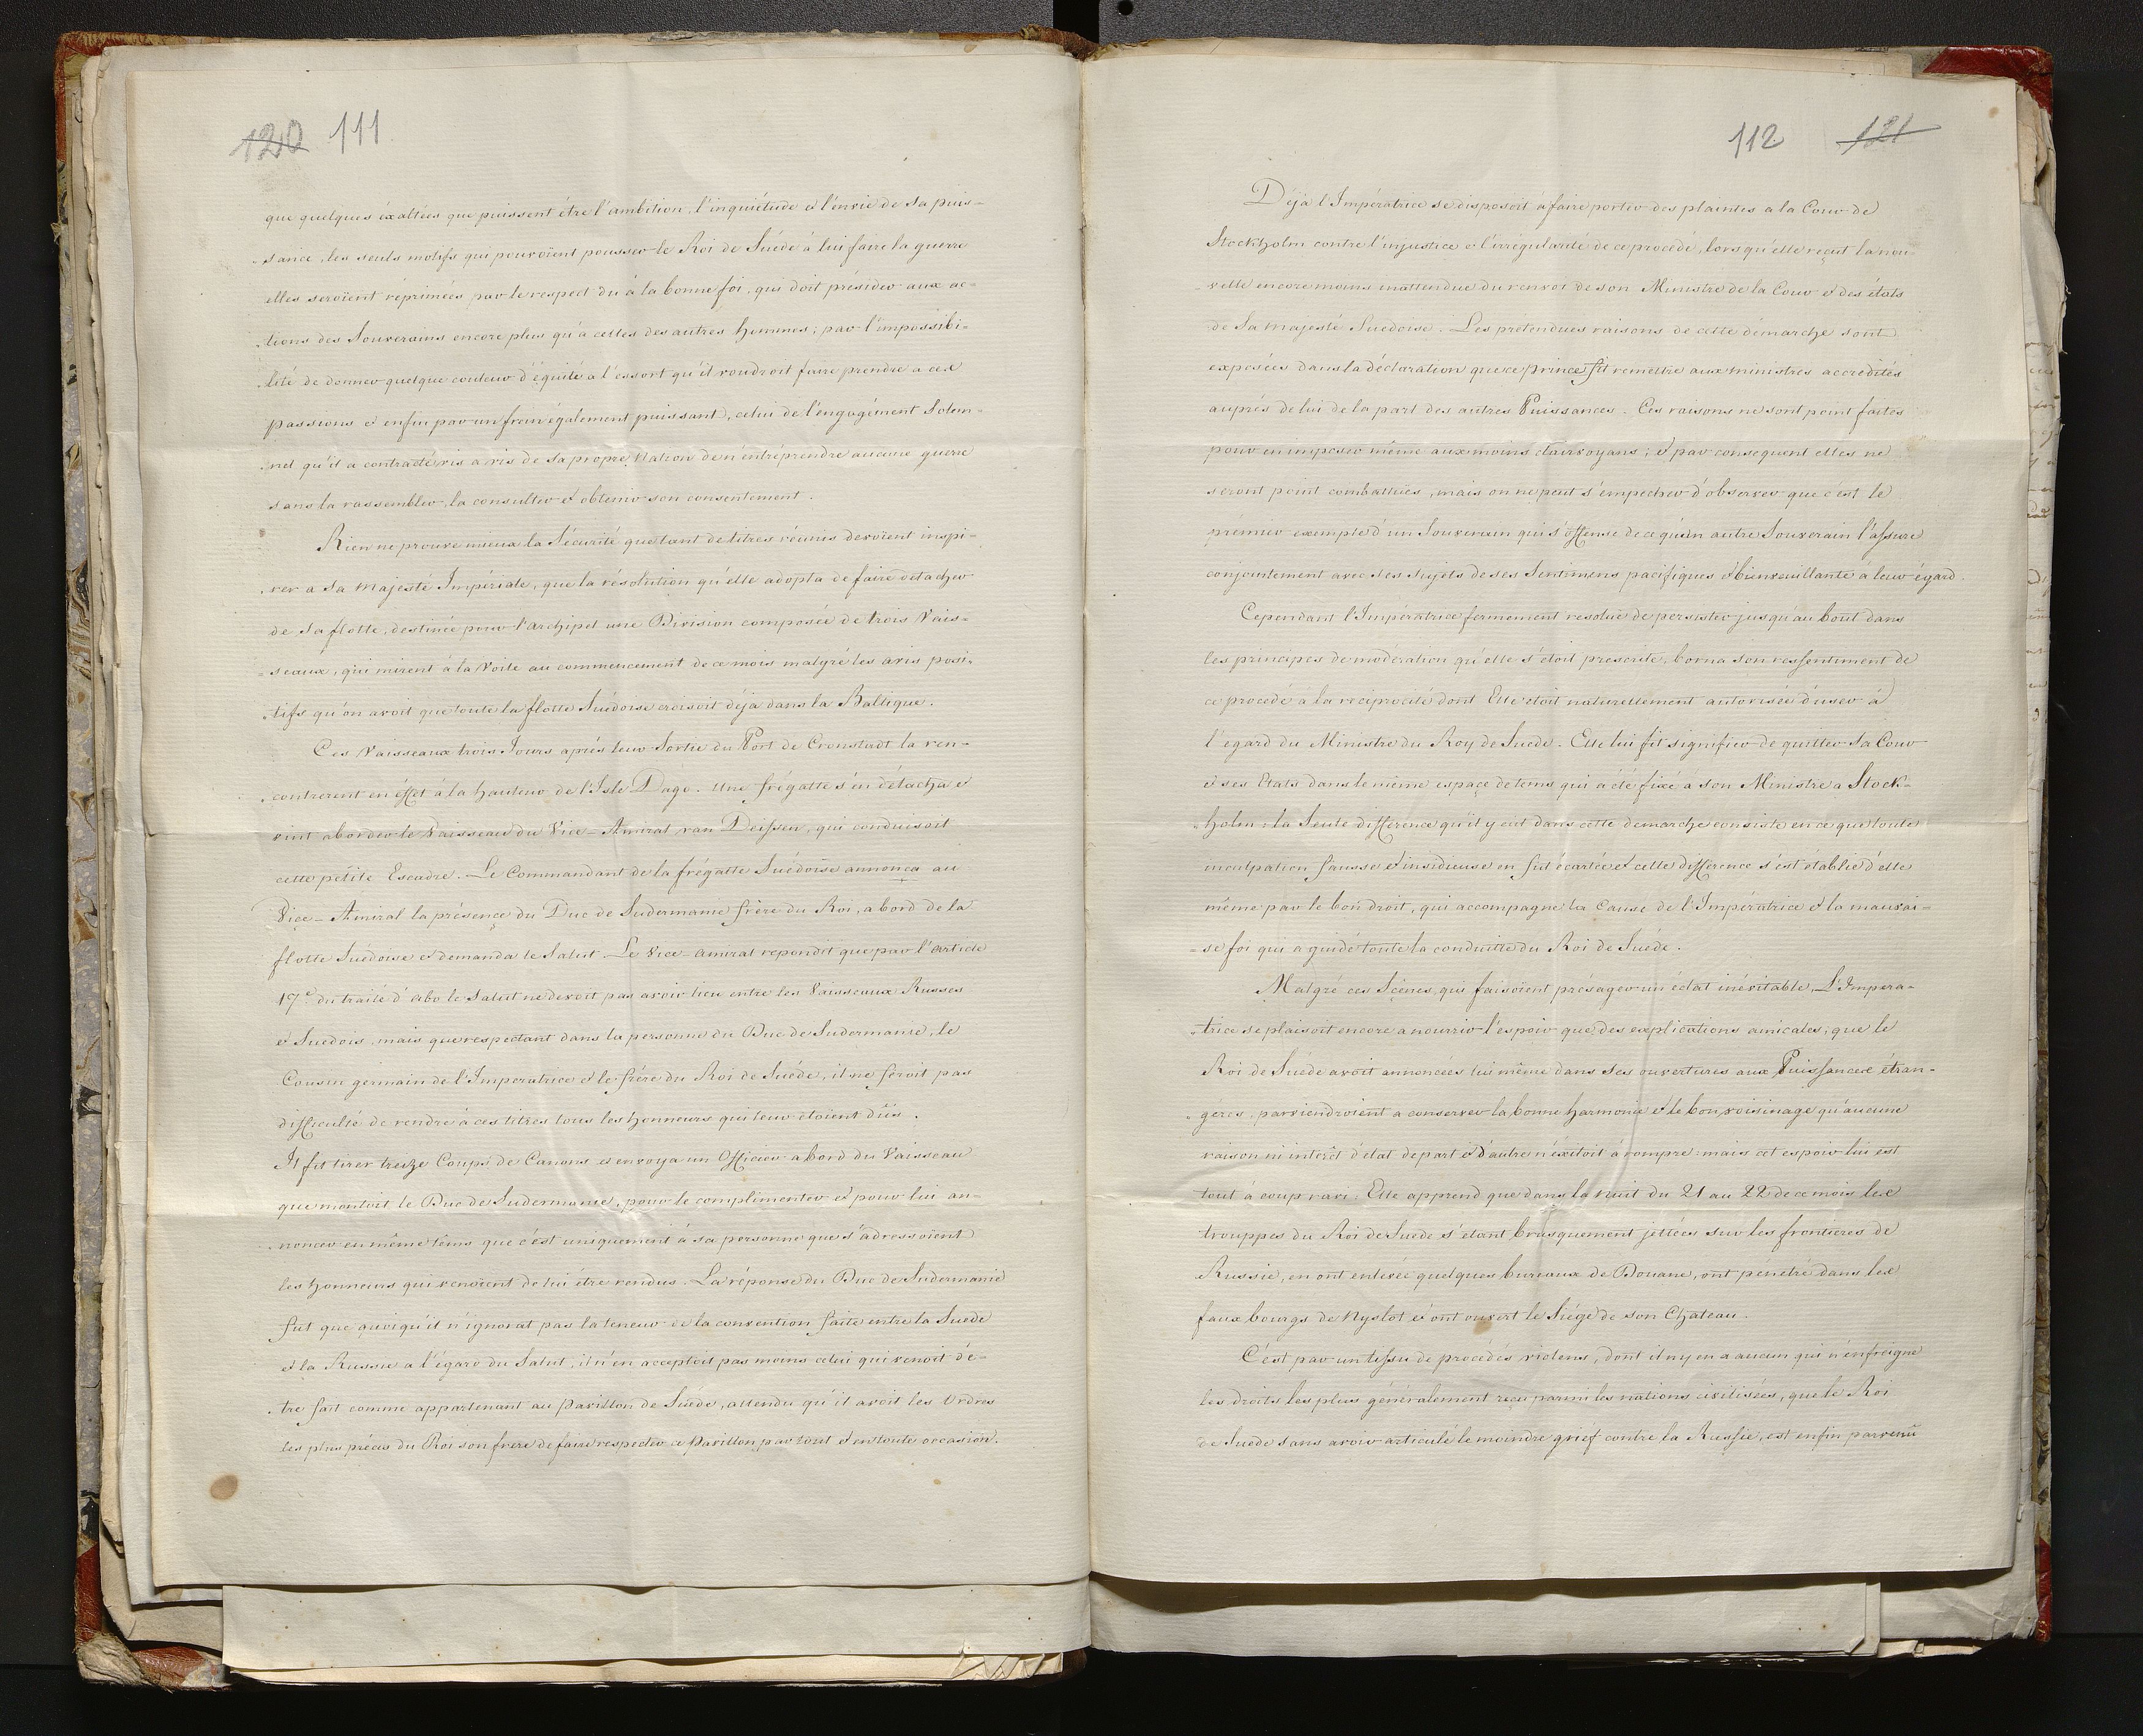 120 111
que quelques éxaltées que puissent être l'ambition, l'inquiétude et l'envie de sa puis-
sance, les seuls motifs qui pouroïent pousser le Roi de Suéde à lui faire la guerre
elles seroïent reprimées par le respect du à la bonne foi, qui doit présider aux ac-
tions des Souverains encore plus qu'a celles des autres hommes; par l'impossibi-
lité de donner quelque couleur d'équité a l'essort qu'il voudroit faire prendre a ces
passions et enfin par un frein également puissant, celui de l'engagément Solem-
nel qu'il a contracté vis a vis de sa propre Nation de n'entréprendre aucune guerre
sans la rassembler, la consulter et obtenir son consentement.
Rien ne prouve mieux la Sécurité que tant de titres réunis devoïent inspi-
rer a Sa Majesté Impériale, que la résolution qu'elle adopta de faire détacher
de sa flotte, destinée pour l'archipel une Division composée de trois Vais-
seaux, qui mirent à la Voile au commencement de ce mois malgré les avis posi-
tifs qu'on avoit que toute la flotte Suédoise croisoit déja dans la Baltique.
Ces Vaisseaux trois Jours aprés leur Sortie du Port de Cronstadt la ren-
contrerent en éffet à la hauteur de l'Isle Dago. Une frégatte s'en détacha et
vint aborder le Vaisseau du Vice-Amiral van Deissen, qui conduisoit
cette pétite Escadre. Le Commandant de la frégatte Suédoise annonca au
Vice-Amiral la présence du Duc de Sudermanie frère du Roi, a bord de la
flotte Suédoise et demanda le Salut. Le Vice-Amiral repondit que par l'article
17e du traité d'Abo le Salut ne devoit pas avoir lieu entre les Vaisseaux Russes
et Suedois, mais que respectant dans la personne du Duc de Sudermanie, le
Cousin germain de l'Imperatrice et le frére du Roi de Suéde, il ne feroit pas
difficulté de rendre à ces titres tous les honneurs qui leur étoient dûs.
It fit tirer treize Coups de Canons et envoya un Officier a bord du Vaisseau
que montoit le Duc de Sudermanie, pour le complimenter et pour lui an-
noncer en même tems que c'est uniquement à sa personne que s'adressoient
les honneurs qui venoïent de lui être rendus. La réponse du Duc de Sudermanie
fut que quoiqu'il n'ignorat pas la teneur de la convention faite entre la Suede
et la Russie a l'égard du Salut, il n'en acceptoit pas moins celui qui venoit d'é-
tre fait comme appartenant au Pavillon de Suéde, attendu qu'il avoit les Ordres
les plus précis du Roi son frere de faire respecter ce Pavillon par tout et en toute occasion.
112 121
Déja l'Impératrice se disposoit à faire porter des plaintes a la Cour de
Stockholm contre l'injustice et l'irrégularité de ce procédé, lorsqu'elle reçut la nou-
velle encore moins inattendue du renvoi de son Ministre de la Cour et des états
de Sa Majesté Suedoise. Les prétendues raisons de cette démarche sont
exposées dans la déclaration que ce prince fit remettre aux ministres accrédités
auprés de lui de la part des autres Puissances. Ces raisons ne sont point faites
pour en imposer même aux moins clairvoyans; et par consequent elles ne
seront point combattües, mais on ne peut s'empecher d'observer que c'est le
prémier exemple d'un Souverain qui s'offense de ce qu'un autre Souverain l'assure
conjointement avec ses Sujets de ses Sentimens pacifiques et bienveuillante à leur égard.
Cependant l'Impératrice fermement resolue de persister jusqu'au bout dans
les principes de modération qu'elle s'étoit prescrite, borna son ressentiment de
ce procedé a la réciprocité dont Elle étoit naturellement autorisée d'user à
l'egard du Ministre du Roy de Suede. Elle lui fit signifier de quitter sa Cour
et ses Etats dans le même espaçe de tems qui a été fixé à son Ministre a Stock-
holm: la Seule difference qu'il y eut dans cette demarche consiste en ce que toute
inculpation fausse et insidieuse en fut écartée et cette difference s'est établie d'elle
même par le bon droit, qui accompagne la Cause de l'Impératrice et la mauvai-
se foi qui a guidé toute la conduitte du Roi de Suéde.
Malgré ces Scènes, qui faisoïent présager un éclat inévitable, L'Impera-
trice se plaisoit encore a nourrir l'espoir que des explications amicales, que le
Roi de Suéde avoit annoncées lui même dans ses ouvertures aux Puissances étran-
géres, parviendroient a conserver la bonne harmonie et le bon voisinage qu'aucune
raison ni intérêt d'état de part et d'autre n'éxitoit à rompre: mais cet espoir lui est
tout à coup ravi: Elle apprend que dans la nuit du 21 au 22 de ce mois les
trouppes du Roi de Suede s'etant brusquement jettées sur les frontieres de
Russie, en ont enlevée quelques bureaux de Douane, ont pénétré dans les
faux bourgs de Nyslot et ont ouvert le Siége de son Chateau.
C'est par un tissu de procédés violens, dont il n'y en a aucun qui n'enfreigne
les droits les plus généralement reçu parmi les nations civilisées, que le Roi
de Suede sans avoir articulé le moindre grief contre la Russie, est enfin parvenû